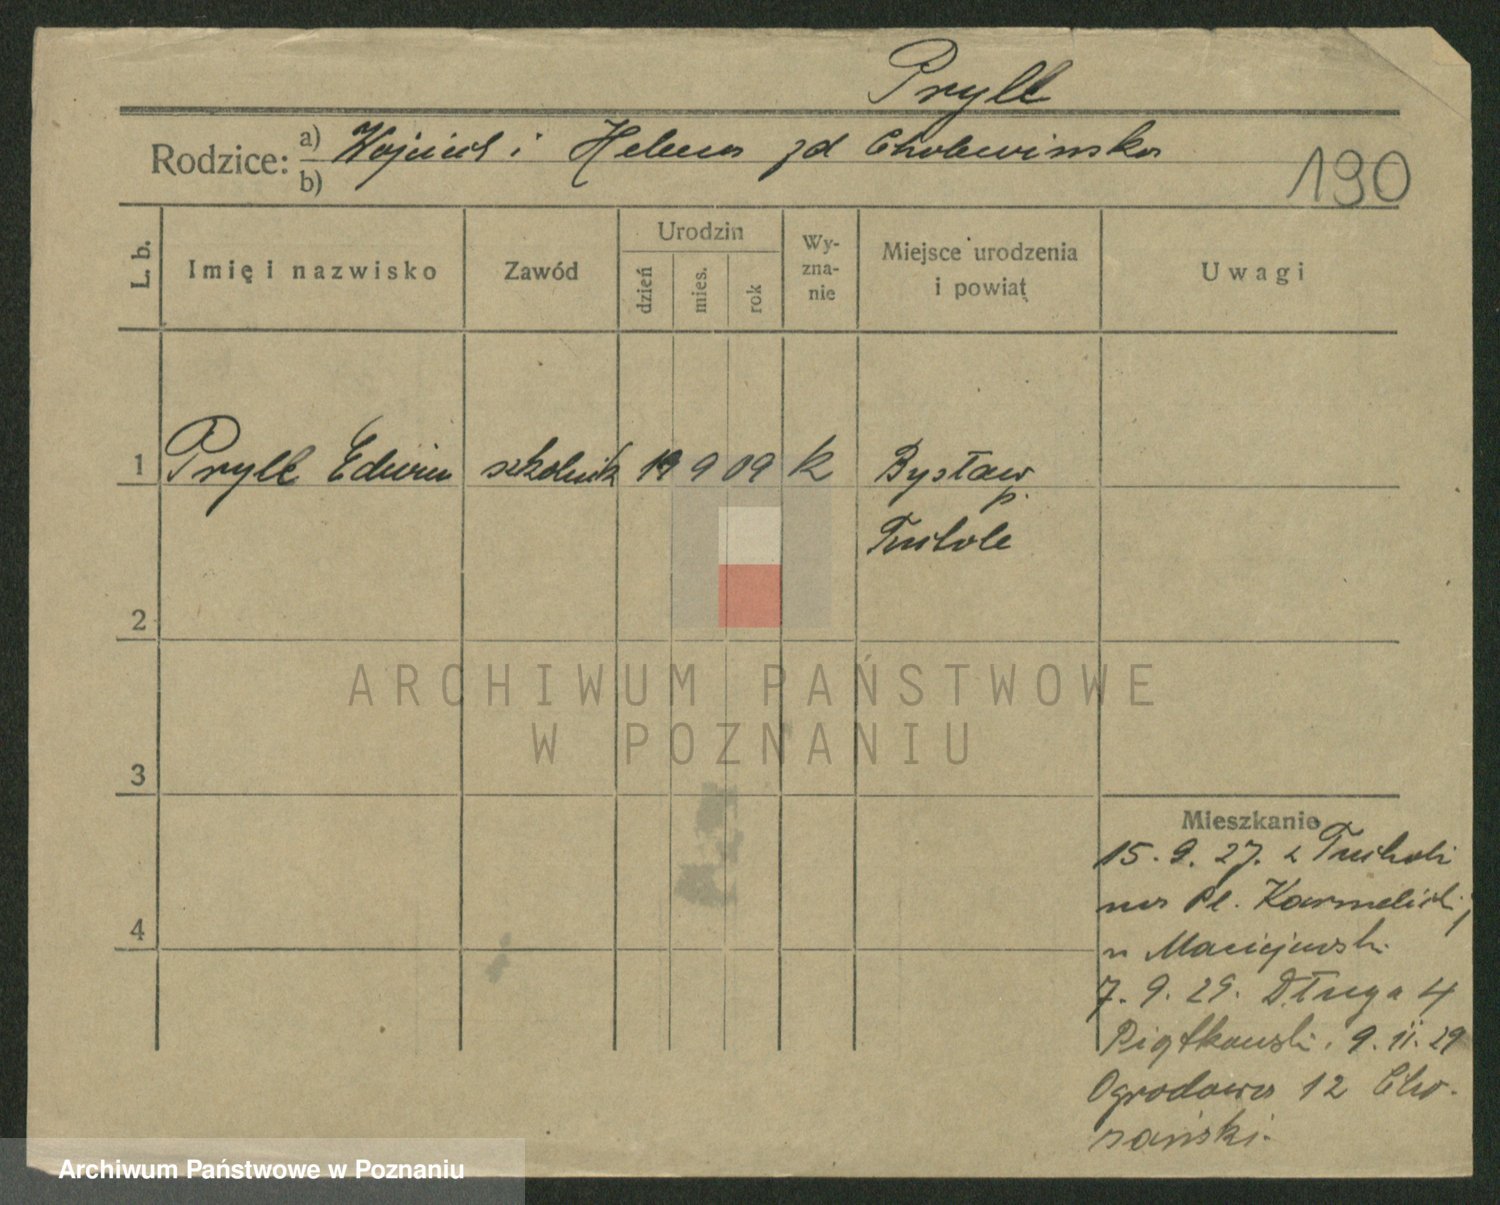 Pryll
Rodzice: a) Wojciech i Helena zd Cholewinska
b)
190
L. b. Imię i nazwisko Zawód Urodzin dzień mies. rok Wy-zna-nie Miejsce urodzenia i powiat Uwagi
1 Pryll Edwin szkolnik 19 9 09 k Bysław
p.
Tuchole
2
ARCHIWUM PAŃSTWOWE
W POZNANIU
3
Mieszkanie
15. 9. 27. z Tucholi
na Pl. Karmelicki
4
u Maciejewski
7. 9. 29. Długa 4
Piątkowski. 9. 11. 29
Ogrodowa 12 Cho-
zański.
Archiwum Państwowe w Poznaniu